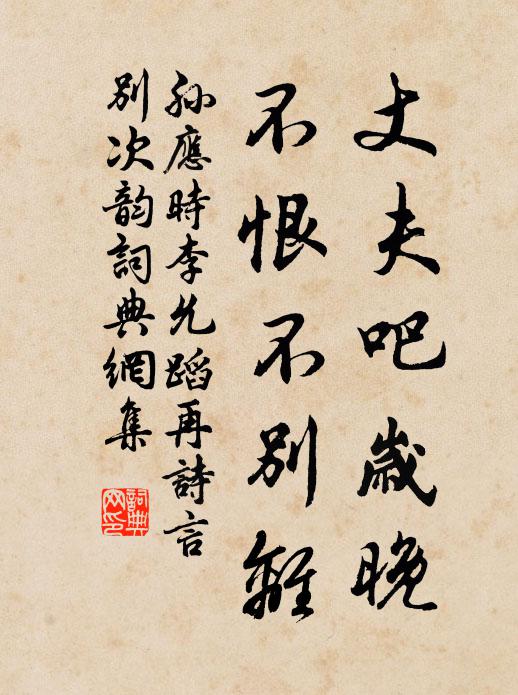 丈夫吧歲晚
不恨不別離
孫應時李允蹈再詩言
別次韵詞典網集
詞典
网印